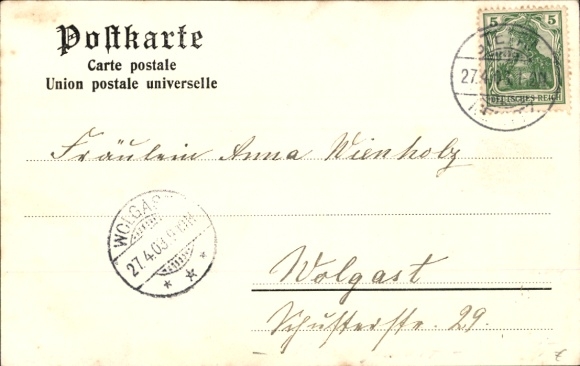 Postkarte
Carte postale
Union postale universelle
5 5
DEUTSCHES REICH
27.4.03
Fräulein Anna Wienholz
WOLGAST
27.4.03
Wolgast
Schusterstr. 29.